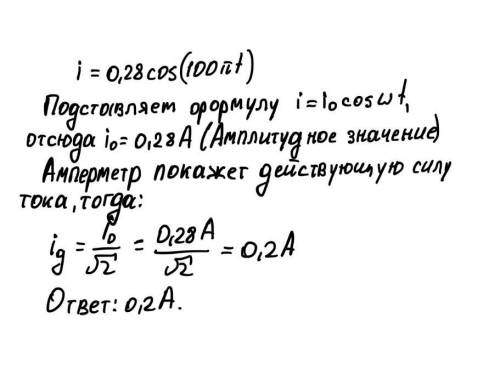 i = 0,28 cos(100πt)
Подставляет формулу i = i₀ cos ωt,
отсюда i₀ = 0,28 А (Амплитудное значение)
Амперметр покажет действующую силу
тока, тогда:
i_g = i₀/√2 = 0,28 А/√2 = 0,2 А
Ответ: 0,2 А.